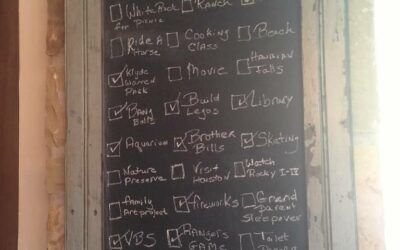 White Rock
for picnic
Ranch
Ride A
Horse
Cooking
Class
Beach
Klyde
Warren
Park
Movie
Hawaiian
Falls
Bang
Build
Legos
Library
Aquarium
Brother
Bills
Skating
Nature
Preserve
Visit
Houston
Watch
Rocky I-IV
Family
Art project
fireworks
Grand
Parent
Sleepover
VBS
Rangers
GAME
Toilet